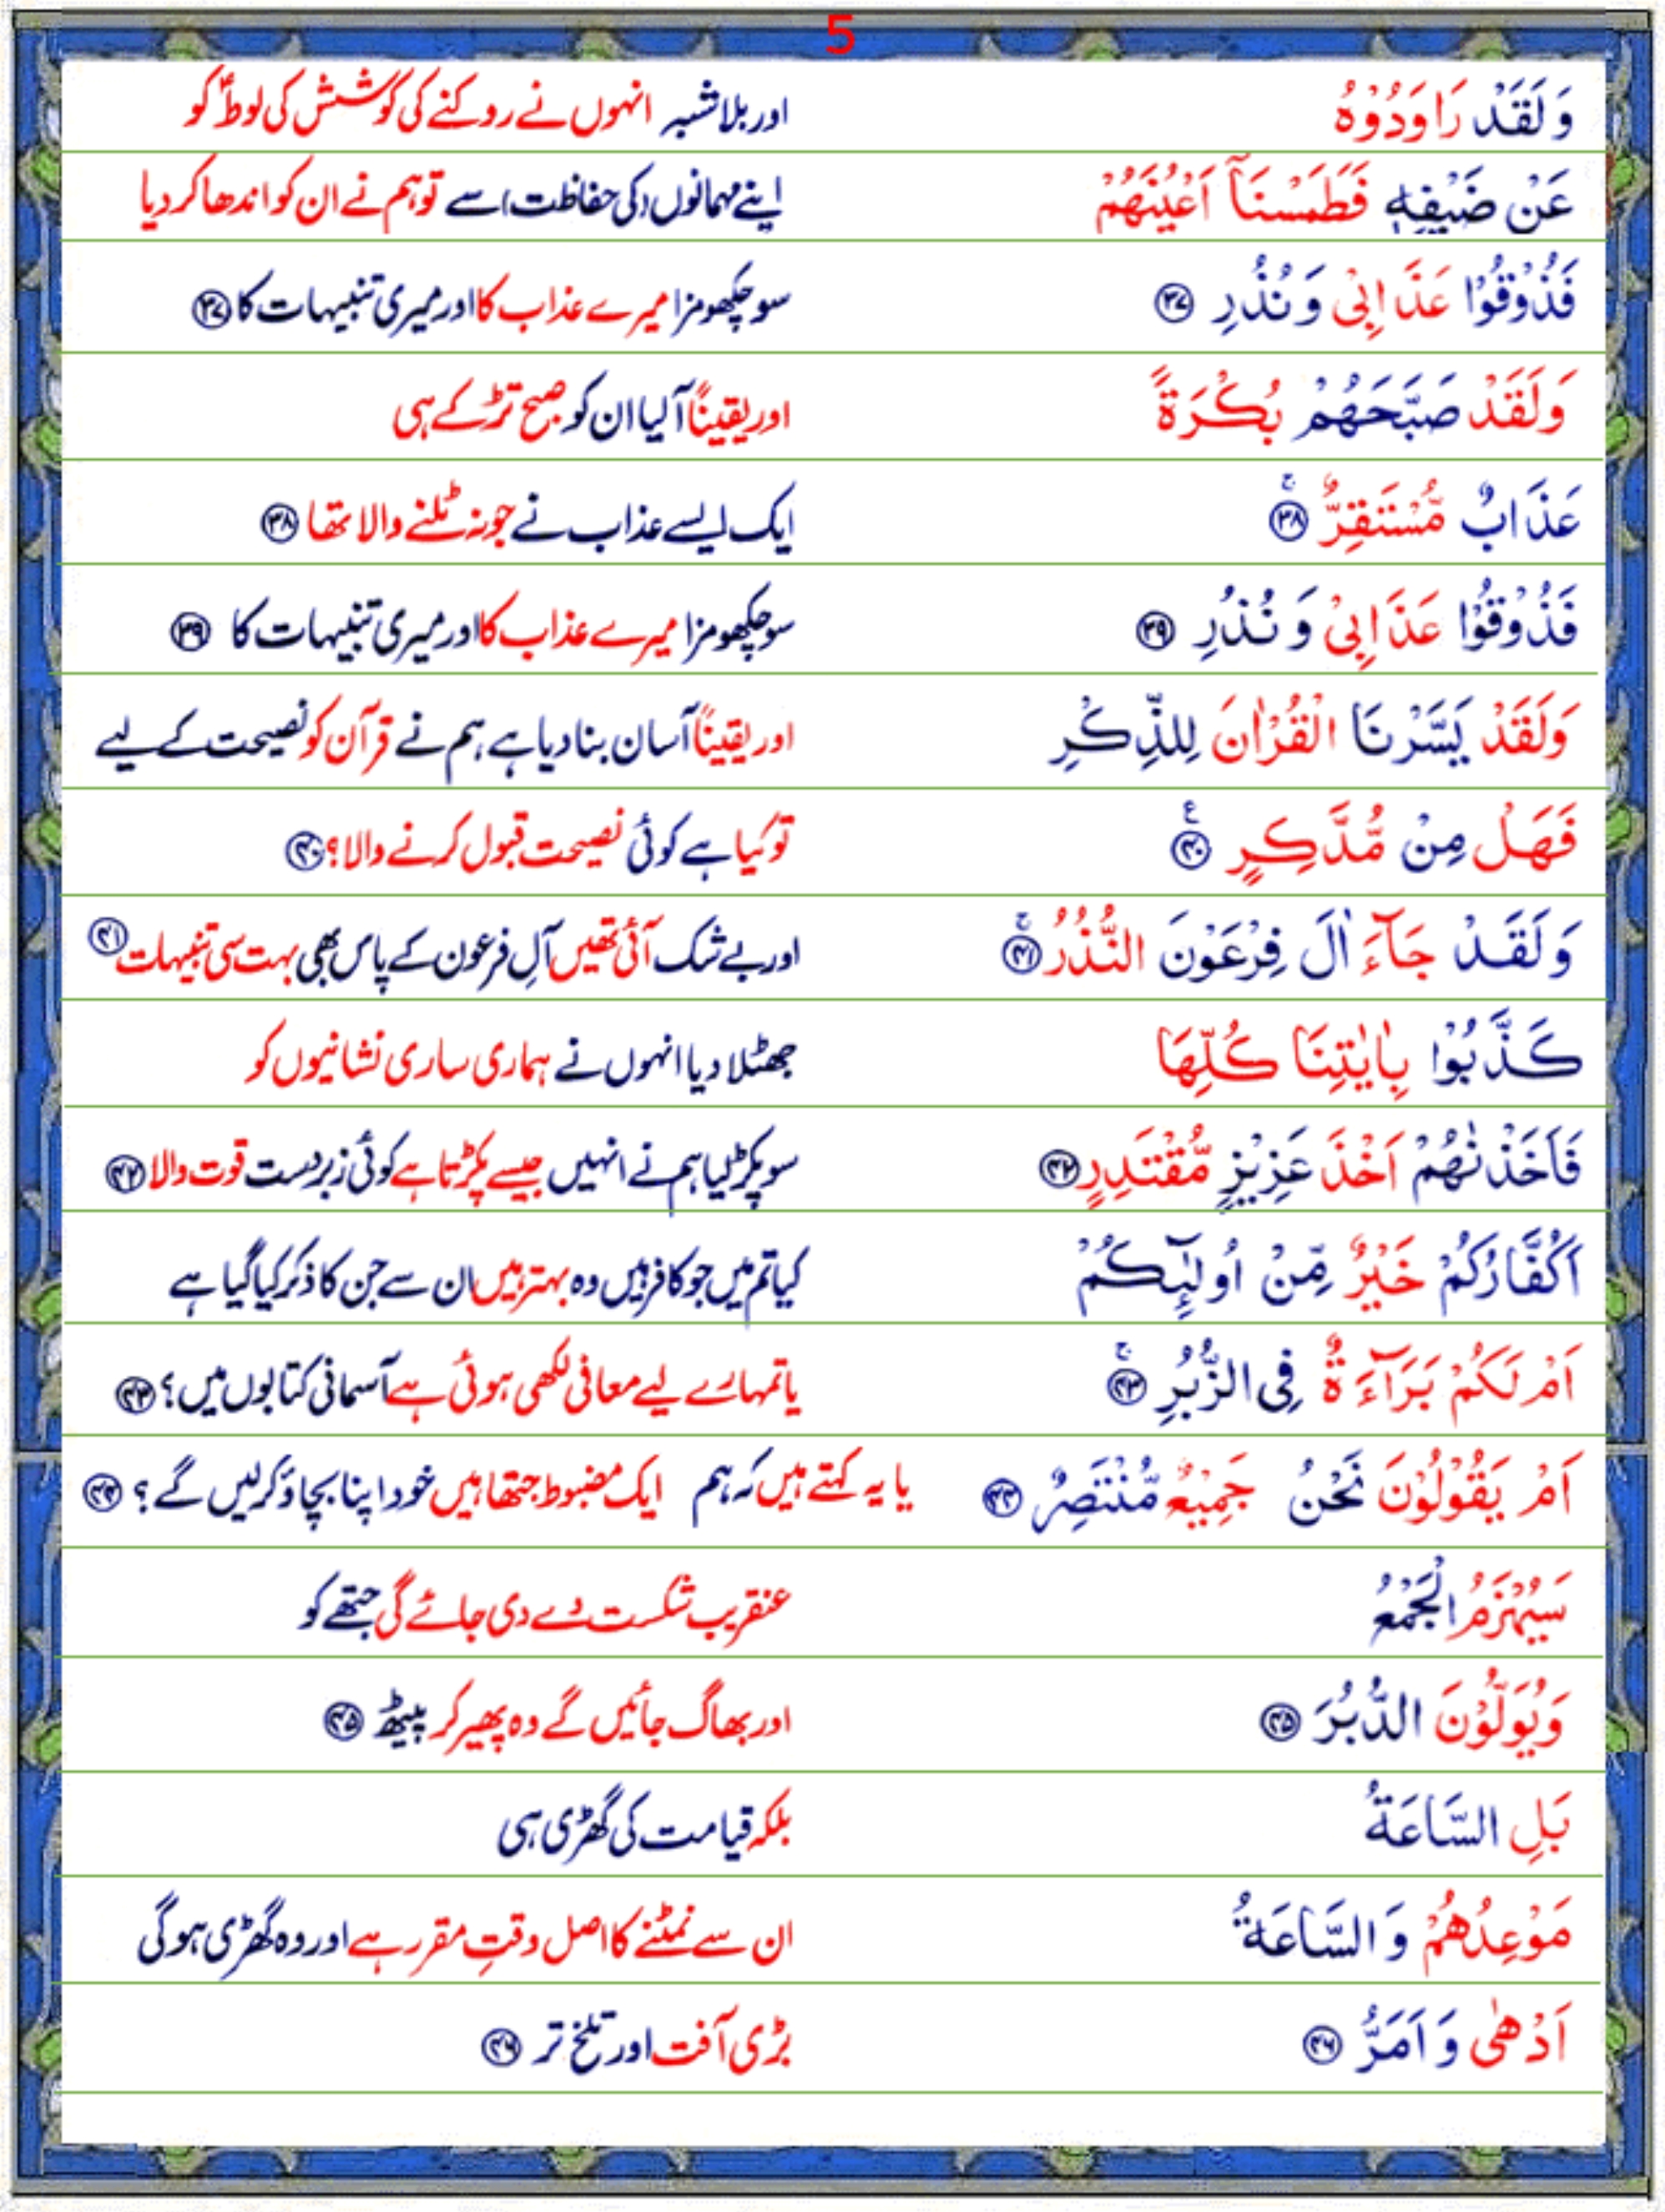 5
وَلَقَدْ رَاوَدُوْهُ اور بلاشبہ انہوں نے روکنے کی کوشش کی لوطؑ کو
عَنْ ضَيْفِهٖ فَطَمَسْنَآ اَعْيُنَهُمْ اپنے مہمانوں (کی حفاظت) سے تو ہم نے ان کو اندھا کر دیا
فَذُوْقُوْا عَذَابِيْ وَنُذُرِ ﴿۳۷﴾ سو چکھو مزا میرے عذاب کا اور میری تنبیہات کا ﴿۳۷﴾
وَلَقَدْ صَبَّحَهُمْ بُكْرَةً اور یقیناً آ لیا ان کو صبح تڑکے ہی
عَذَابٌ مُّسْتَقِرٌّ ۚ﴿۳۸﴾ ایک ایسے عذاب نے جو نہ ٹلنے والا تھا ﴿۳۸﴾
فَذُوْقُوْا عَذَابِيْ وَنُذُرِ ﴿۳۹﴾ سو چکھو مزا میرے عذاب کا اور میری تنبیہات کا ﴿۳۹﴾
وَلَقَدْ يَسَّرْنَا الْقُرْاٰنَ لِلذِّكْرِ اور یقیناً آسان بنا دیا ہے ہم نے قرآن کو نصیحت کے لیے
فَهَلْ مِنْ مُّدَّكِرٍ ﴿۴۰﴾ۧ تو کیا ہے کوئی نصیحت قبول کرنے والا؟ ﴿۴۰﴾
وَلَقَدْ جَآءَ اٰلَ فِرْعَوْنَ النُّذُرُ ۚ﴿۴۱﴾ اور بے شک آئی تھیں آلِ فرعون کے پاس بھی بہت سی تنبیہات ﴿۴۱﴾
كَذَّبُوْا بِاٰيٰتِنَا كُلِّهَا جھٹلا دیا انہوں نے ہماری ساری نشانیوں کو
فَاَخَذْنٰهُمْ اَخْذَ عَزِيْزٍ مُّقْتَدِرٍ ﴿۴۲﴾ سو پکڑ لیا ہم نے انہیں جیسے پکڑتا ہے کوئی زبردست قوت والا ﴿۴۲﴾
اَكُفَّارُكُمْ خَيْرٌ مِّنْ اُولٰٓئِكُمْ کیا تم میں جو کافر ہیں وہ بہتر ہیں ان سے جن کا ذکر کیا گیا ہے
اَمْ لَكُمْ بَرَآءَةٌ فِي الزُّبُرِ ۚ﴿۴۳﴾ یا تمہارے لیے معافی لکھی ہوئی ہے آسمانی کتابوں میں؟ ﴿۴۳﴾
اَمْ يَقُوْلُوْنَ نَحْنُ جَمِيْعٌ مُّنْتَصِرٌ ﴿۴۴﴾ یا یہ کہتے ہیں کہ ہم ایک مضبوط جتھا ہیں خود اپنا بچاؤ کر لیں گے؟ ﴿۴۴﴾
سَيُهْزَمُ الْجَمْعُ عنقریب شکست دے دی جائے گی جتھے کو
وَيُوَلُّوْنَ الدُّبُرَ ﴿۴۵﴾ اور بھاگ جائیں گے وہ پھیر کر پیٹھ ﴿۴۵﴾
بَلِ السَّاعَةُ بلکہ قیامت کی گھڑی ہی
مَوْعِدُهُمْ وَالسَّاعَةُ ان سے نمٹنے کا اصل وقتِ مقرر ہے اور وہ گھڑی ہوگی
اَدْهٰى وَاَمَرُّ ﴿۴۶﴾ بڑی آفت اور تلخ تر ﴿۴۶﴾